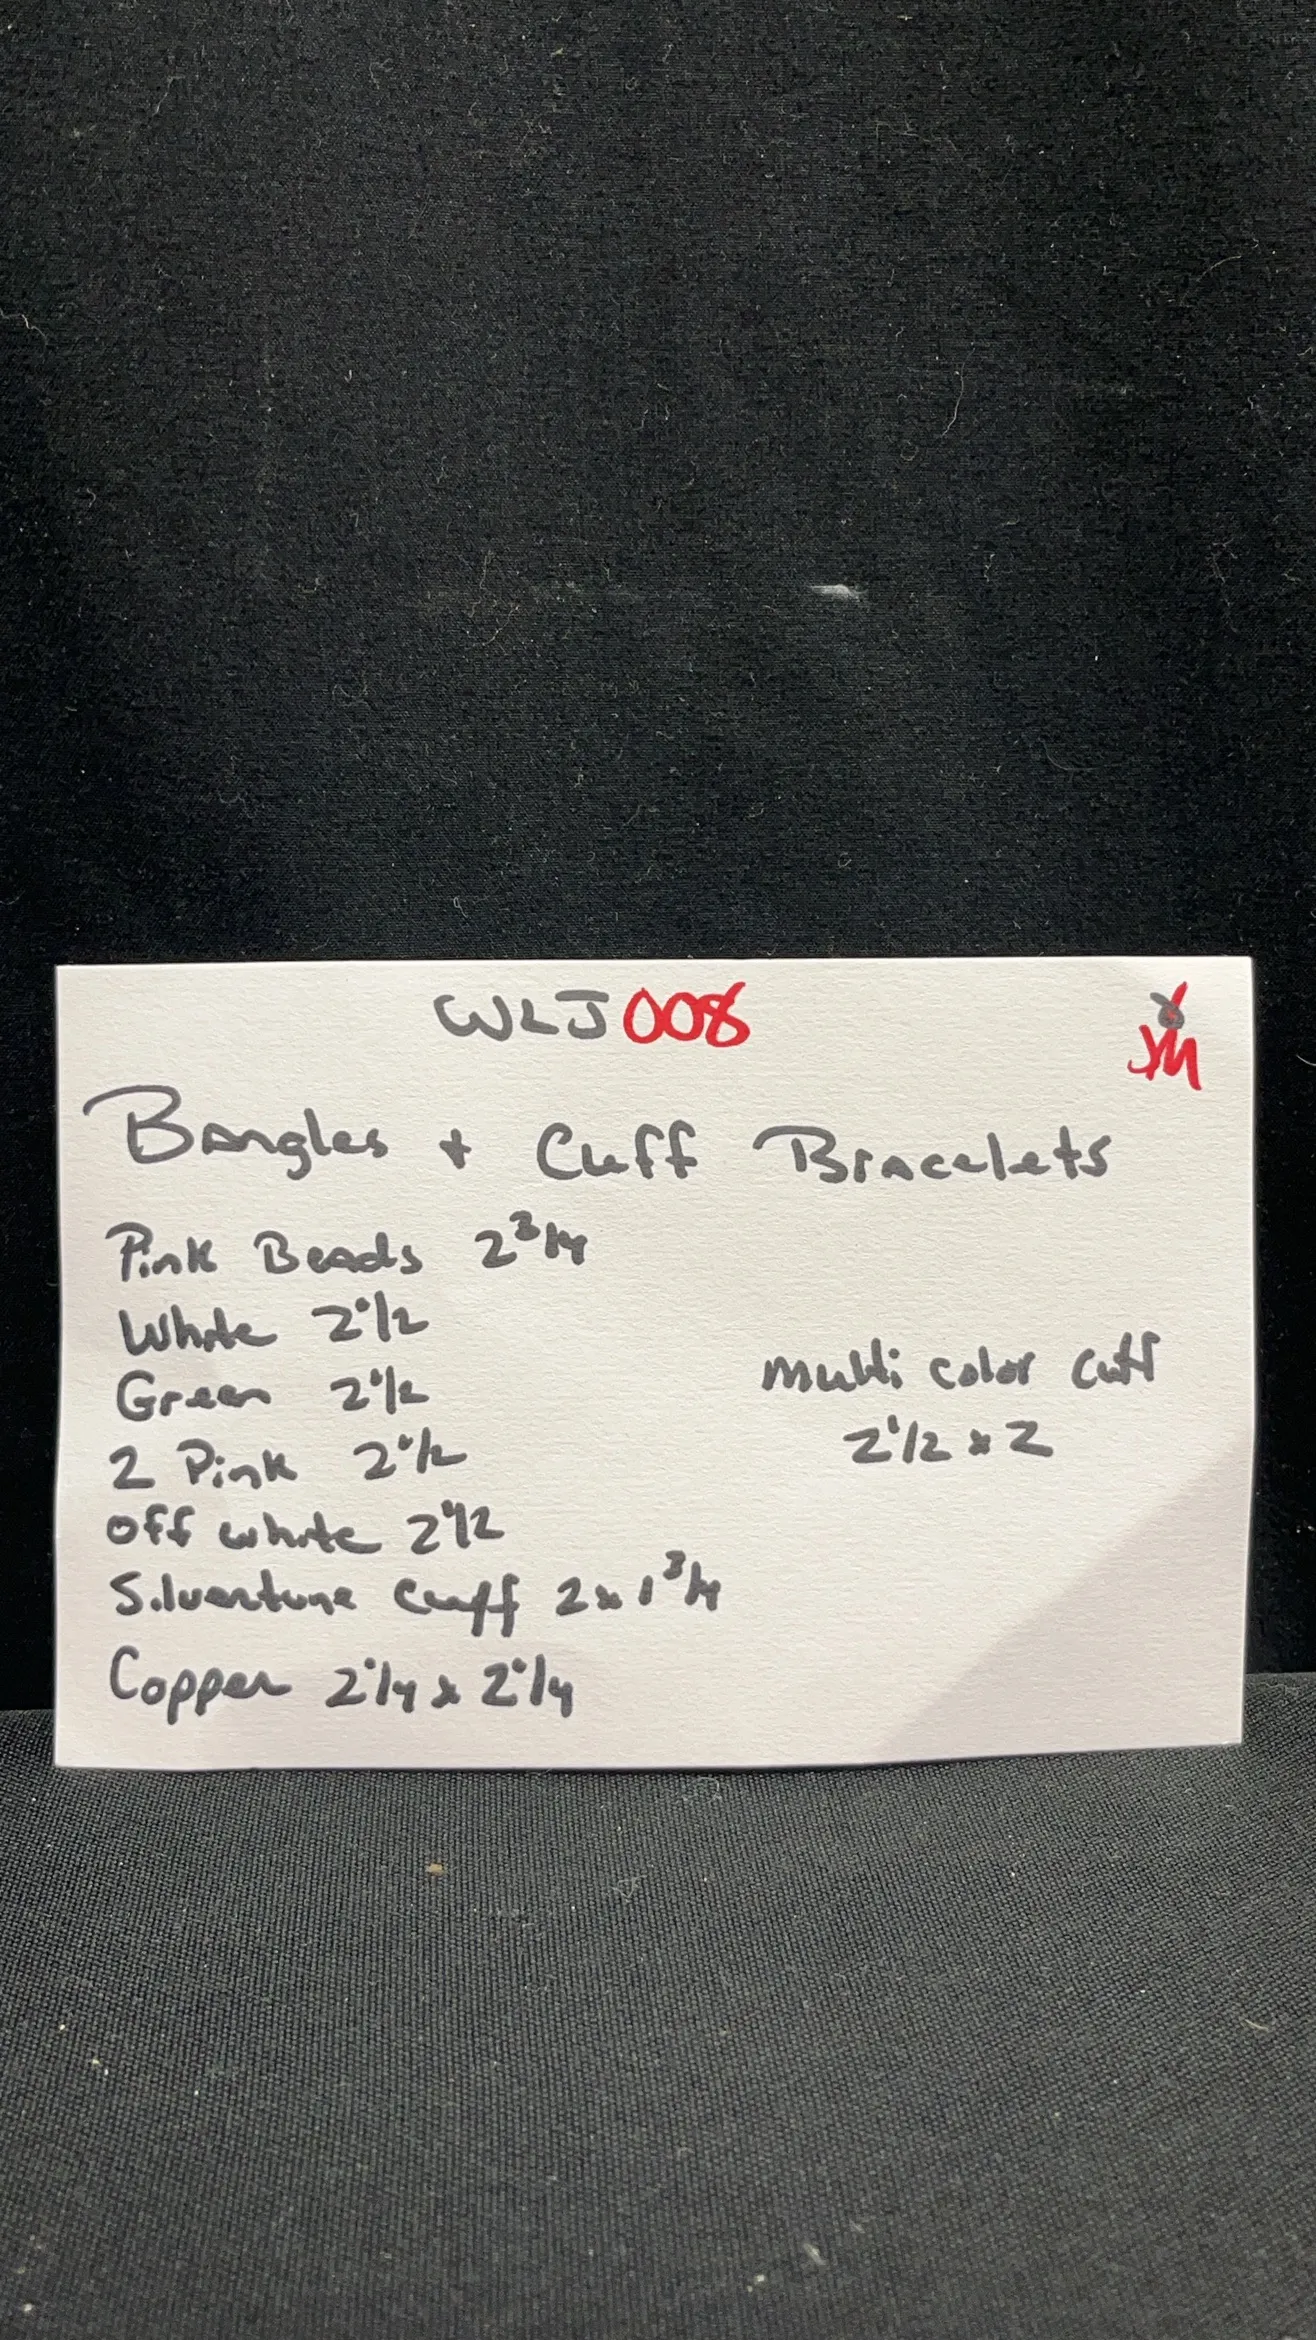 WLJ008
JM
Bangles + Cuff Bracelets
Pink Beads 2 3/4
White 2 1/2
Green 2 1/2
2 Pink 2 1/2
off white 2 1/2
Silvertone Cuff 2 x 1 3/4
Copper 2 1/4 x 2 1/4
multi color cuff
2 1/2 x 2